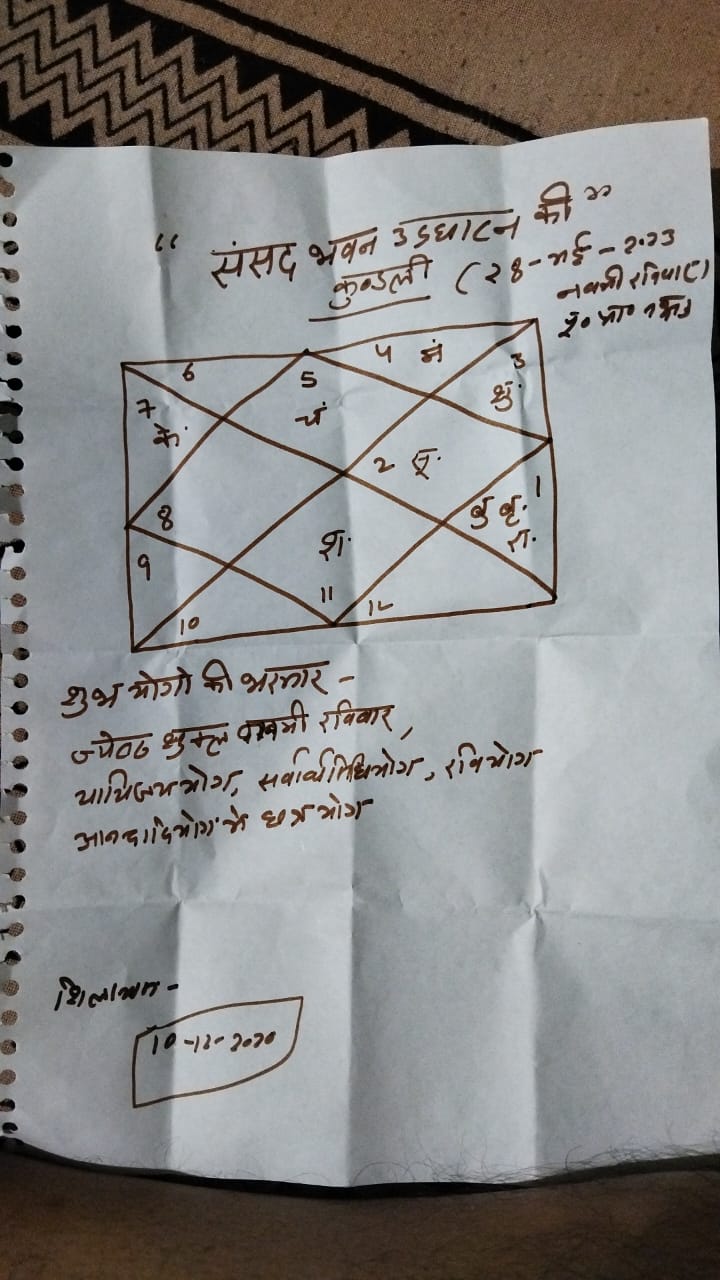 “ संसद भवन उद्घाटन की ”
कुण्डली (28-मई-2023
नवमी रविवार)
6
5
4 मं
3
7
के
चं
शु.
2 सू.
1
8
बु बृ.
रा.
9
श.
10
11
12
शुभ योगो की भरमार -
ज्येष्ठ शुक्ल नवमी रविवार,
यायिजययोग, सर्वार्थसिद्धियोग, रवियोग
आनन्दादियोग मे छत्र योग
शिलान्यास -
10-12-2020